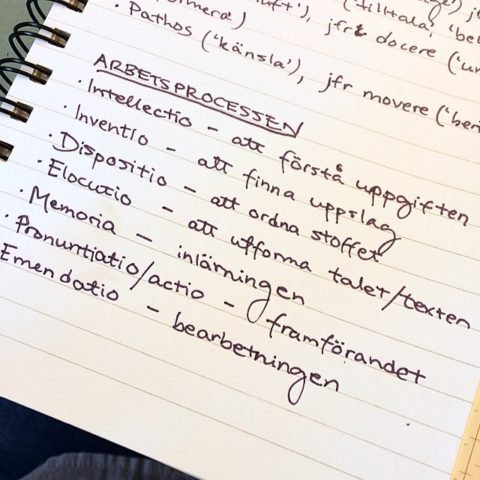 'tilltala', 'be
· Pathos ('känsla'), jfr movere ('ber
jfr docere ('un
ARBETSPROCESSEN
· Intellectio – att förstå uppgiften
· Inventio – att finna uppslag
· Dispositio – att ordna stoffet
· Elocutio – att utforma talet/texten
· Memoria – inlärningen
· Pronuntiatio/actio – framförandet
Emendatio – bearbetningen